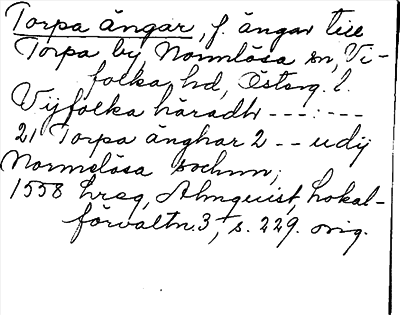 Torpa ängar, f. ängar till
Torpa by, Normlösa sn, Vi-
folka hd, Österg. l.
Vijfolka häradh ---:---
21 Torpa änghar 2 -- udij
Normelösa sochnn;
1558 hreg, Almquist, Lokal-
förvaltn. 3, s. 229. orig.